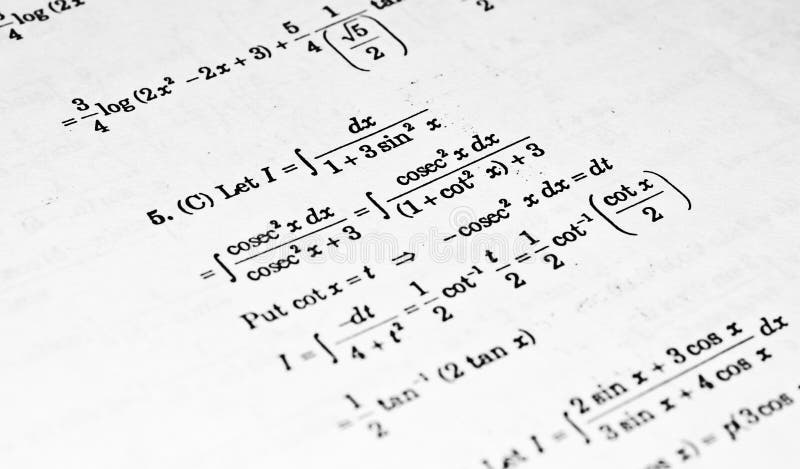 3/4 log (2x
= 3/4 log (2x² − 2x + 3) + 5/4 1/(√5/2) 2
5. (C) Let I = ∫ dx/(1 + 3 sin² x)
= ∫ cosec² x dx/(cosec² x + 3) = ∫ cosec² x dx/((1 + cot² x) + 3)
Put cot x = t ⇒ − cosec² x dx = dt
I = ∫ −dt/(4 + t²) = 1/2 cot⁻¹ t/2 = 1/2 cot⁻¹ (cot x/2)
= 1/2 tan⁻¹ (2 tan x)
Let I = ∫ (2 sin x + 3 cos x)/(3 sin x + 4 cos x) dx
x) = p(3 cos